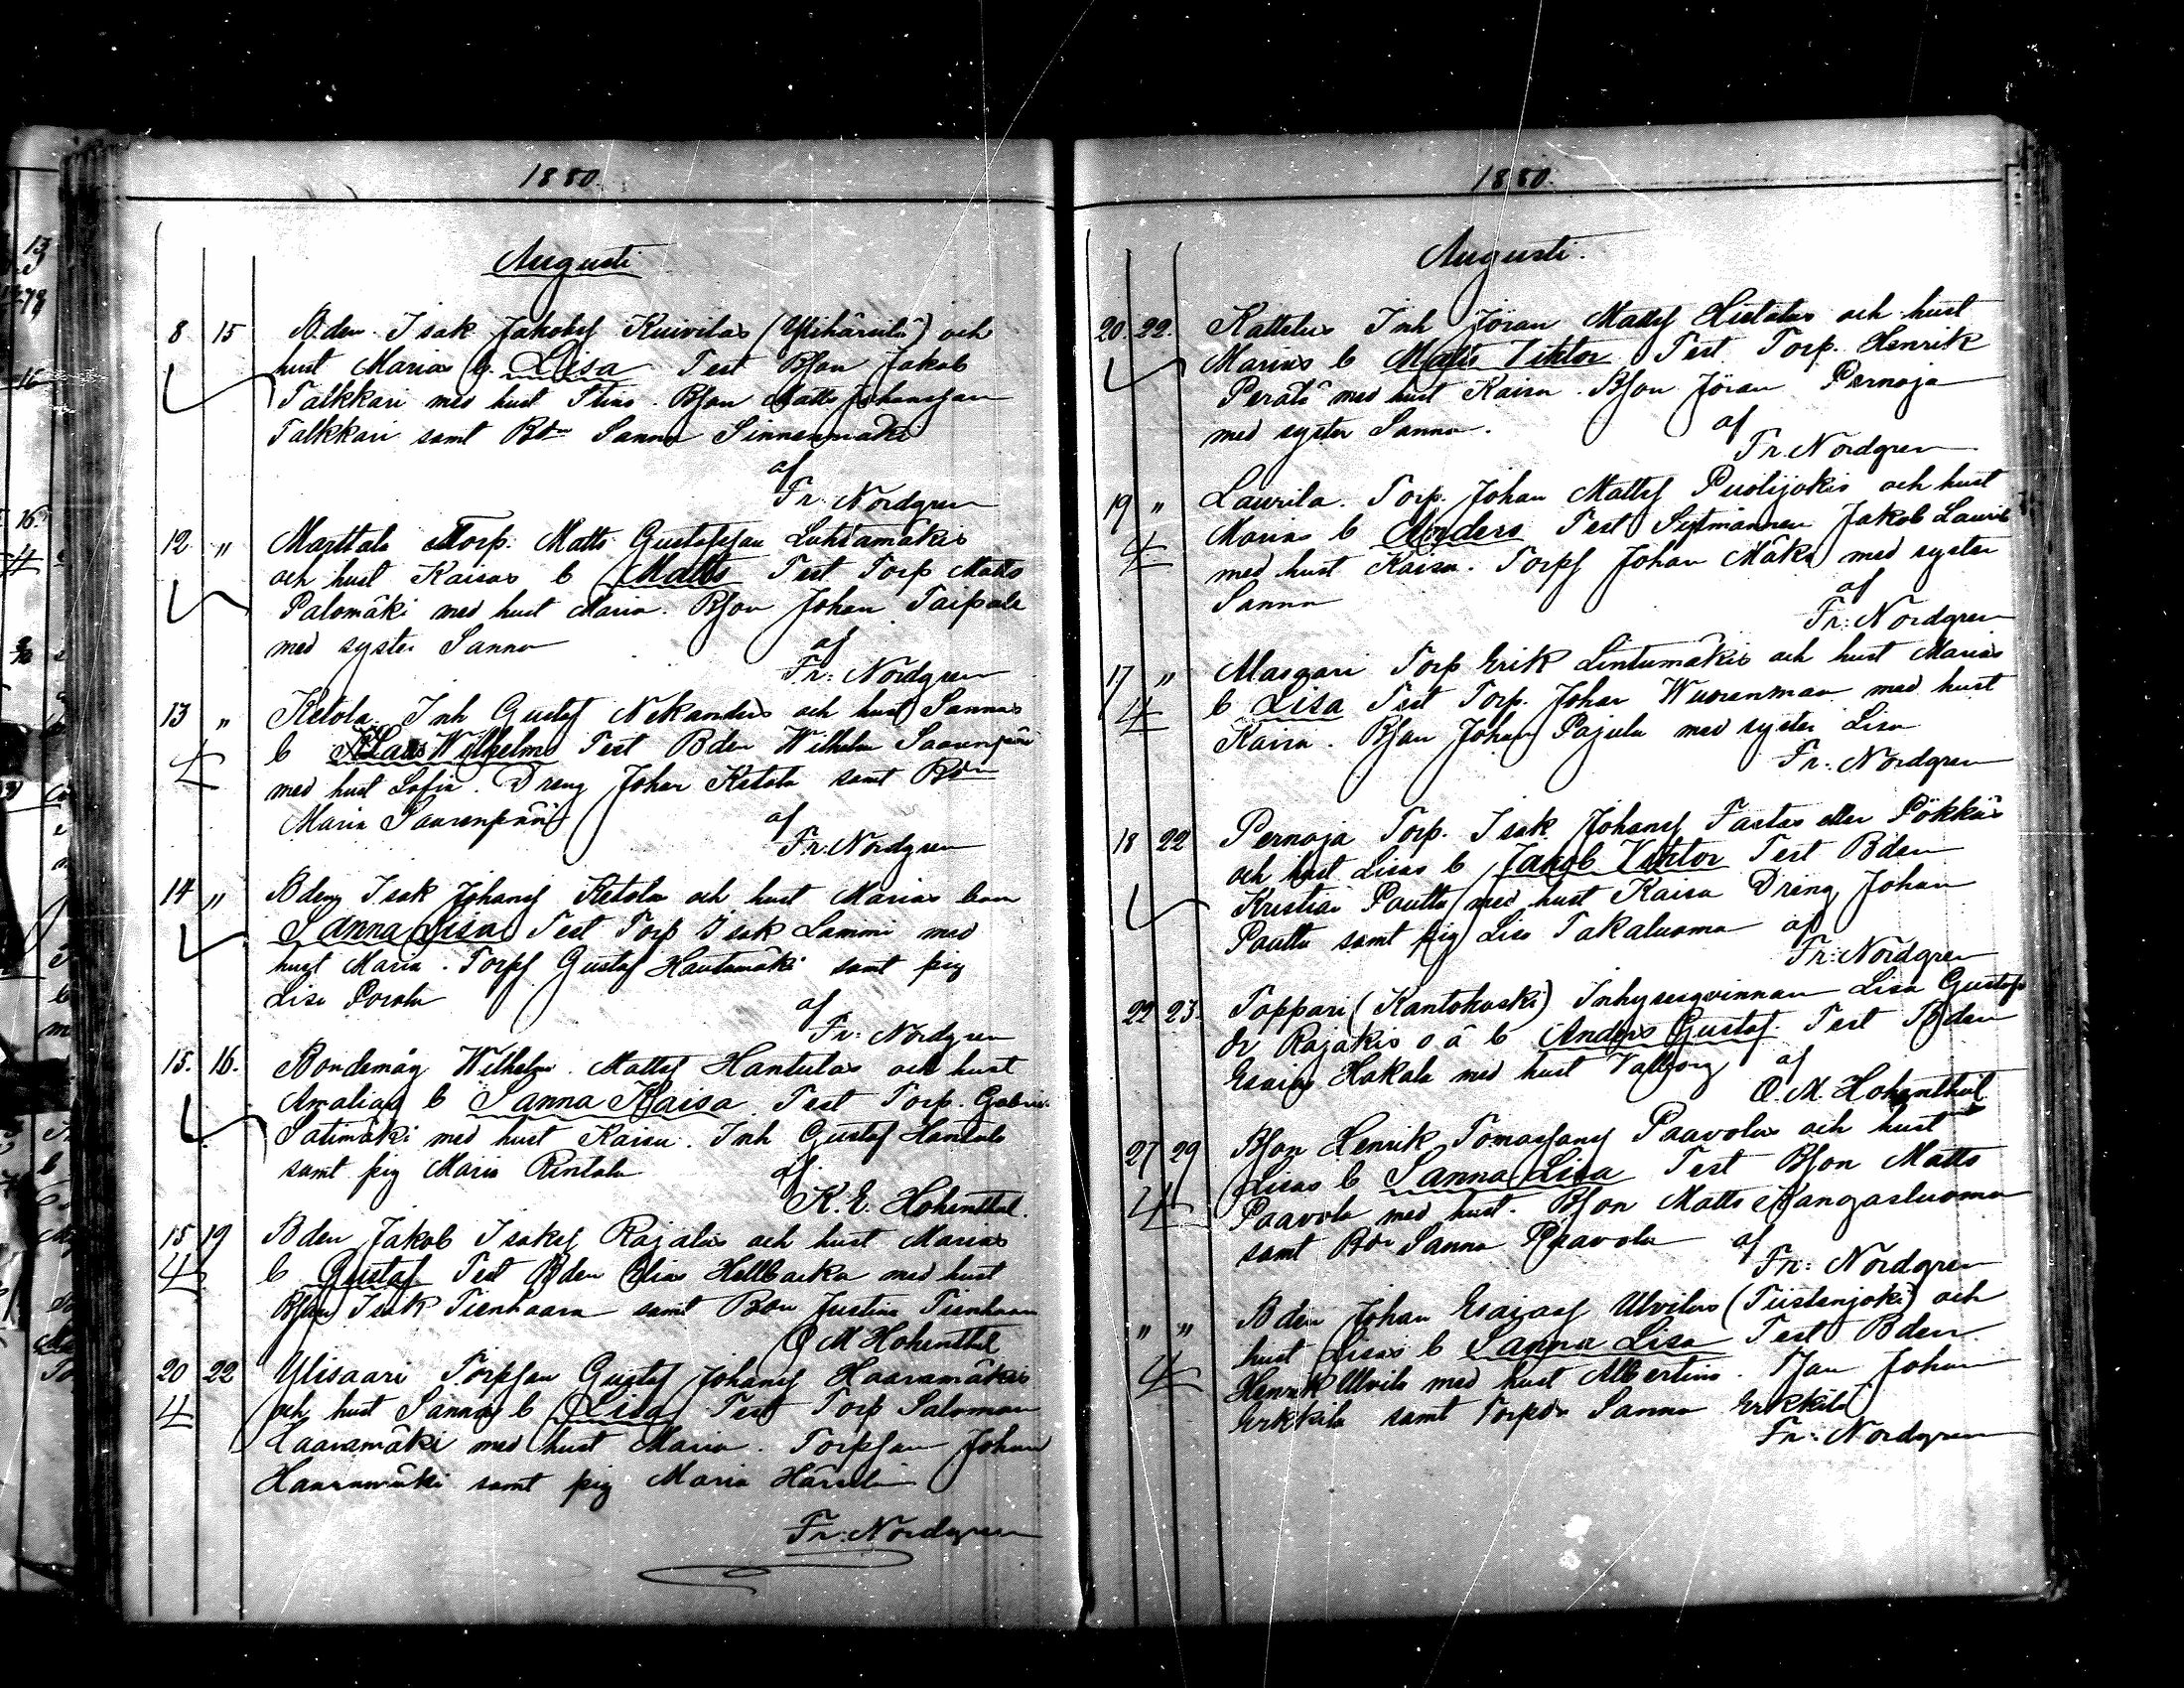 1880.
Augusti
8 15 Bden Isak Jakobsf Kuivilas (Ylihärsilä) och
hust Marias b. Lisa Test Bson Jakob
Talkkari med hust Stina. Bson Matts Johansson
Talkkari samt Bdr Sanna Sinnenmäki
af
Fr. Nordgren
12 " Marttala Torp. Matts Gustafsson Luhtamäkis
och hust Kaisas b Matts Test Torp Matts
Palomäki med hust Maria. Bson Johan Taipale
med syster Sanna af
Fr: Nordgren
13 " Ketola Inh Gustaf Nekanders och hust Sannas
b Wilhelm Test Bden Wilhelm Saarenpää
4 med hust Sofia. Dreng Johan Ketola samt Bdr
Maria Saarenpää af
Fr: Nordgren
14 " Bden Isak Johansf Ketola och hust Marias barn
Sanna Lisa Test Torp Isak Lammi med
hust Maria. Torps Gustaf Hautamäki samt pig
Lisa Porola af
Fr: Nordgren
15. 16. Bondemåg Wilhelm Mattsf Hantulas och hust
Amalias b Sanna Kaisa. Test Torp. Gabriel
Satimäki med hust Kaisa. Inh Gustaf Hantula
samt pig Maria Rintala af
K. E. Hohenthal.
15 19 Bden Jakob Isaksf Rajalas och hust Marias
4 b Gustaf Test Bden Elias Hellbacka med hust
Bson Isak Tienhaara samt Bdr Justina Tienhaara
O M Hohenthal
20 22 Ylisaari Torpson Gustaf Johansf Haaramäkis
4 och hust Sannas b Lisa Test Torp Salomon
Haaramäki med hust Maria. Torpson Johan
Haaramäki samt pig Maria Härsilä
Fr: Nordgren
1880.
Augusti.
20. 22. Kattelus Inh Jöran Mattsf Hietalas och hust
Marias b Matts Viktor Test. Torp. Henrik
Perätä med hust Kaisa. Bson Jöran Pernaja
med syster Sanna. af
Fr. Nordgren
19 " Laurila. Torp. Johan Mattsf Puolijokis och hust
4 Marias b Anders Test Sytmannen Jakob Laurila
med hust Kaisa. Torps Johan Mäki med syster
Sanna af
Fr: Nordgren
17 " Masgari Torp Erik Lintumäkis och hust Marias
4 b Lisa Test Torp. Johan Wuorenmaa med hust
Kaisa. Bson Johan Pajula med syster Lisa
Fr: Nordgren
18 22 Pernaja Torp. Isak Johansf Fastas eller Pökkäs
och hust Lisas b Jakob Viktor Test Bden
Kristian Pouttu med hust Kaisa Dreng Johan
Pouttu samt pig Lisa Takaluoma af
Fr: Nordgren
22 23. Tappari (Kantokoski) Inhysesqvinnan Lisa Gustafs
dr Rajakis o ä b Anders Gustaf. Test Bden
Esaias Hakala med hust Valborg af
O. M. Hohenthal
27 29 Bson Henrik Tomassons Paavolas och hust
4 Lisas b Sanna Lisa Test Bson Matts
Paavola med hust. Bson Matts Kangasluoma
samt Bdr Sanna Paavola af
Fr: Nordgren
" " Bden Johan Esaiasf Ulvilas (Tiistenjoki) och
4 hust Lisas b Sanna Lisa Test Bden
Henrik Ulvila med hust Albertina. Johan
Erkkilä samt Torpdr Sanna Erkkilä
Fr: Nordgren